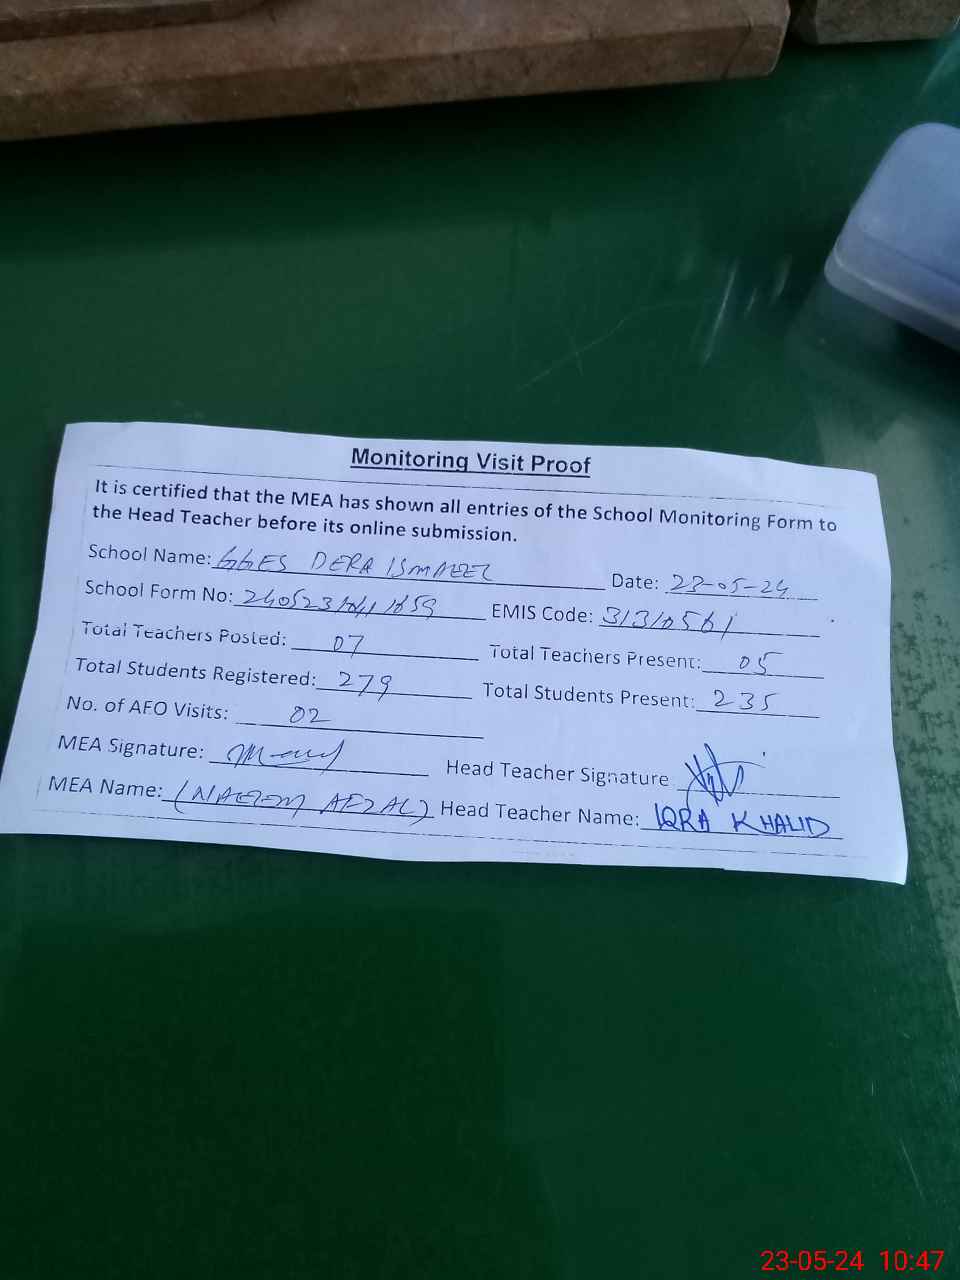 Monitoring Visit Proof
It is certified that the MEA has shown all entries of the School Monitoring Form to
the Head Teacher before its online submission.
School Name: GGES DERA ISMAEEL Date: 23-05-24
School Form No: 240523 1859 EMIS Code: 31310561
Total Teachers Posted: 07 Total Teachers Present: 05
Total Students Registered: 279 Total Students Present: 235
No. of AEO Visits: 02
MEA Signature: Head Teacher Signature
MEA Name: (NAEEM AFZAL) Head Teacher Name: IQRA KHALID
23-05-24 10:47